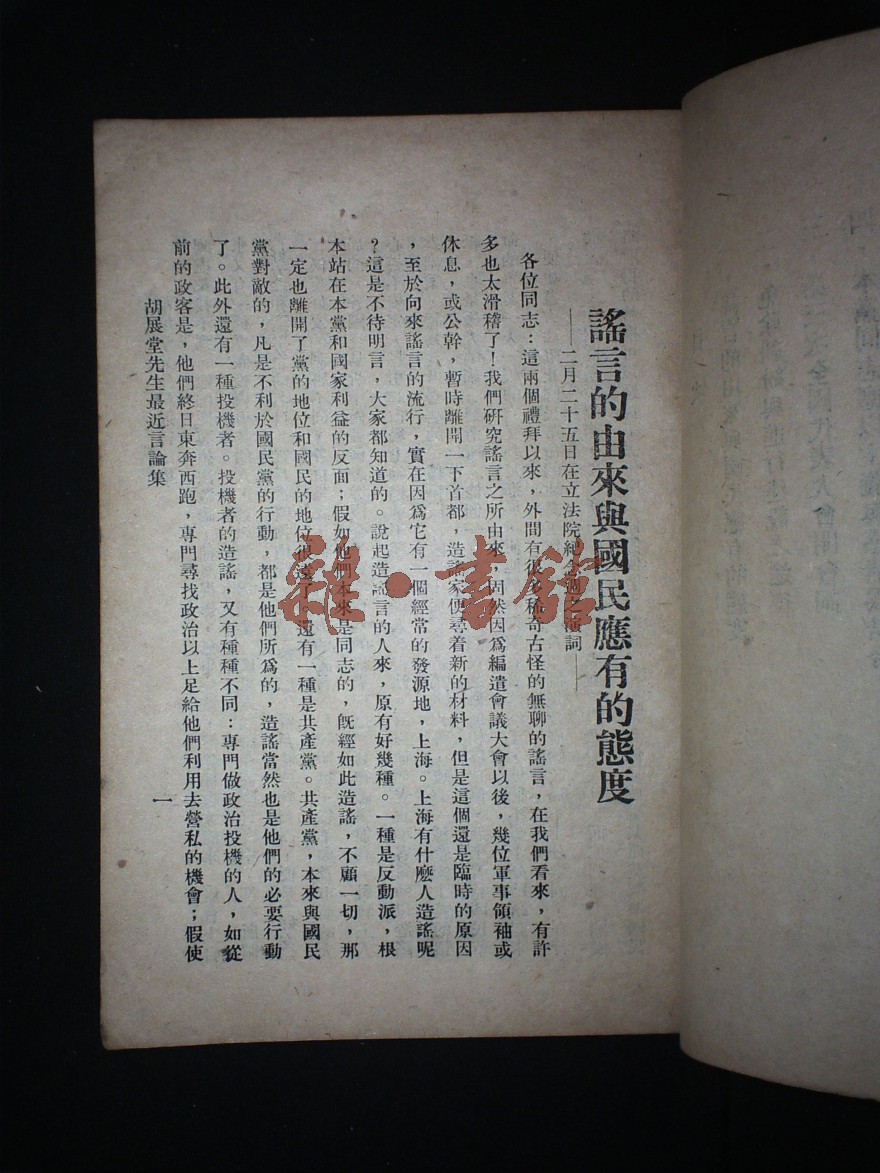 謠言的由來與國民應有的態度
——二月二十五日在立法院紀念週之演詞——
各位同志：這兩個禮拜以來，外間有很多稀奇古怪的無聊的謠言，在我們看來，有許
多也太滑稽了！我們研究謠言之所由來，固然因爲編遣會議大會以後，幾位軍事領袖或
休息，或公幹，暫時離開一下首都，造謠家便尋着新的材料，但是這個還是臨時的原因
，至於向來謠言的流行，實在因爲它有一個經常的發源地，上海。上海有什麽人造謠呢
？這是不待明言，大家都知道的。說起造謠言的人來，原有好幾種。一種是反動派，根
本站在本黨和國家利益的反面；假如他們本來是同志的，旣經如此造謠，不顧一切，那
一定也離開了黨的地位和國民的地位很遠了。還有一種是共產黨。共產黨，本來與國民
黨對敵的，凡是不利於國民黨的行動，都是他們所爲的，造謠當然也是他們的必要行動
了。此外還有一種投機者。投機者的造謠，又有種種不同：專門做政治投機的人，如從
前的政客是，他們終日東奔西跑，專門尋找政治以上足給他們利用去營私的機會；假使
胡展堂先生最近言論集
一
雜·書館